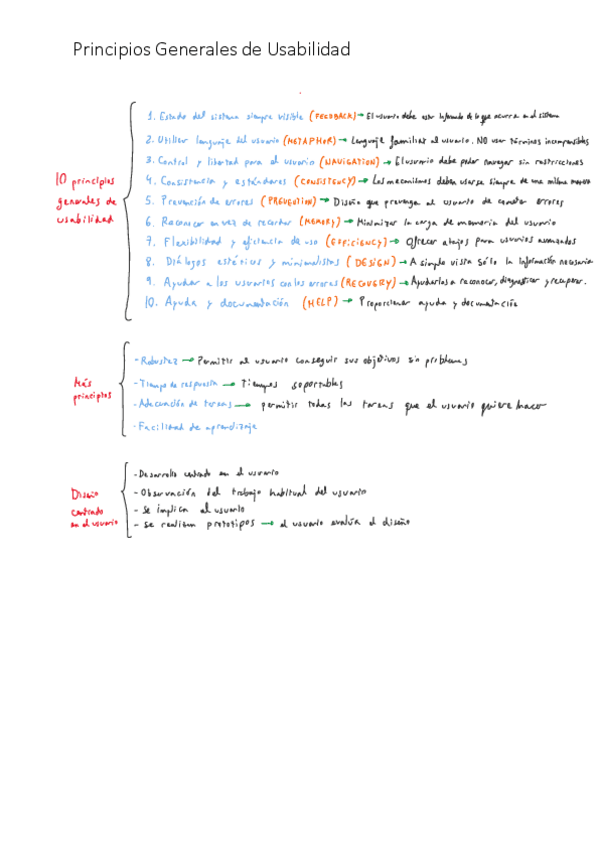 Principios Generales de Usabilidad
10 principios generales de usabilidad
1. Estado del sistema siempre visible (FEEDBACK) → El usuario debe estar informado de lo que ocurre en el sistema
2. Utilizar lenguaje del usuario (METAPHOR) → Lenguaje familiar al usuario. NO usar términos incomprensibles
3. Control y libertad para el usuario (NAVIGATION) → El usuario debe poder navegar sin restricciones
4. Consistencia y estándares (CONSISTENCY) → Los mecanismos deben usarse siempre de una misma manera
5. Prevención de errores (PREVENTION) → Diseño que prevenga al usuario de cometer errores
6. Reconocer en vez de recordar (MEMORY) → Minimizar la carga de memoria del usuario
7. Flexibilidad y eficiencia de uso (EFFICIENCY) → Ofrecer atajos para usuarios avanzados
8. Diálogos estéticos y minimalistas (DESIGN) → A simple vista sólo la información necesaria
9. Ayudar a los usuarios con los errores (RECOVERY) → Ayudarlos a reconocer, diagnosticar y recuperar.
10. Ayuda y documentación (HELP) → Proporcionar ayuda y documentación
Más principios
- Robustez → Permitir al usuario conseguir sus objetivos sin problemas
- Tiempo de respuesta → Tiempos soportables
- Adecuación de tareas → permitir todas las tareas que el usuario quiere hacer
- Facilidad de aprendizaje
Diseño centrado en el usuario
- Desarrollo centrado en el usuario
- Observación del trabajo habitual del usuario
- Se implica al usuario
- Se realizan prototipos → el usuario evalúa el diseño